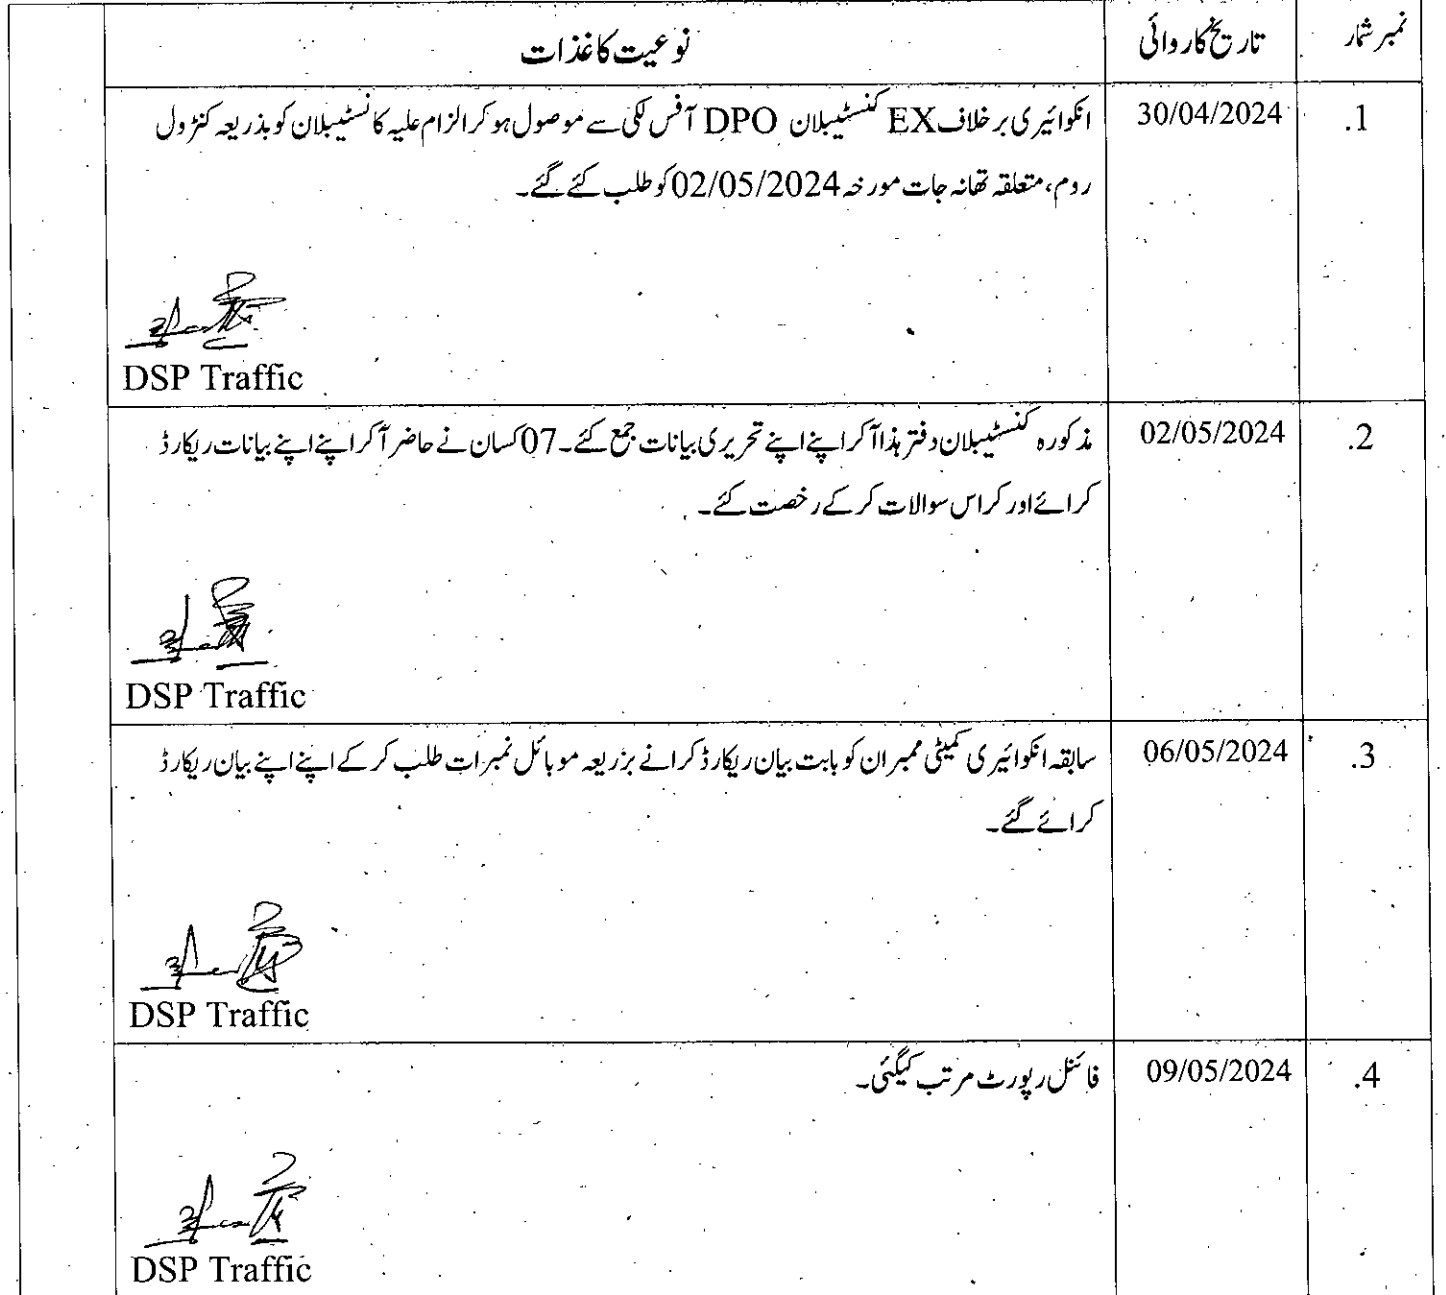 نمبر شمار تاریخ کاروائی نوعیت کاغذات
1. 30/04/2024 انکوائیری برخلاف EX کنسٹیبلان DPO آفس لکی سے موصول ہو کر الزام علیہ کانسٹیبلان کو بذریعہ کنٹرول
روم، متعلقہ تھانہ جات مورخہ 02/05/2024 کو طلب کئے گئے۔
DSP Traffic
2. 02/05/2024 مذکورہ کنسٹیبلان دفتر ہذا آکر اپنے اپنے تحریری بیانات جمع کئے۔ 07 کسان نے حاضر آکر اپنے اپنے بیانات ریکارڈ
کرائے اور کراس سوالات کر کے رخصت کئے۔
DSP Traffic
3. 06/05/2024 سابقہ انکوائیری کمیٹی ممبران کو بابت بیان ریکارڈ کرانے بزریعہ موبائل نمبرات طلب کر کے اپنے اپنے بیان ریکارڈ
کرائے گئے۔
DSP Traffic
4. 09/05/2024 فائنل رپورٹ مرتب کیگئی۔
DSP Traffic